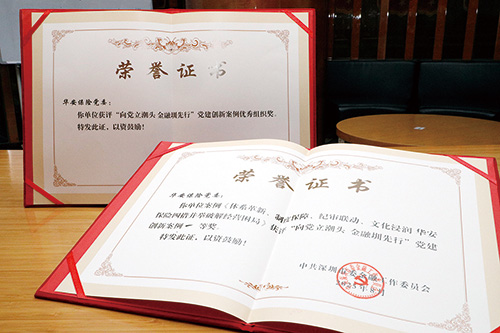 荣誉证书
华安保险党委：
你单位获评“向党立潮头 金融圳先行”党建创新案例优秀组织奖。
特发此证，以资鼓励！
荣誉证书
华安保险党委：
你单位案例《体系革新、制度保障、纪审联动、文化浸润 华安
保险四阶升华破解经营困局》获评“向党立潮头 金融圳先行”党建
创新案例一等奖。
特发此证，以资鼓励！
中共深圳市委金融工作委员会
2025年8月